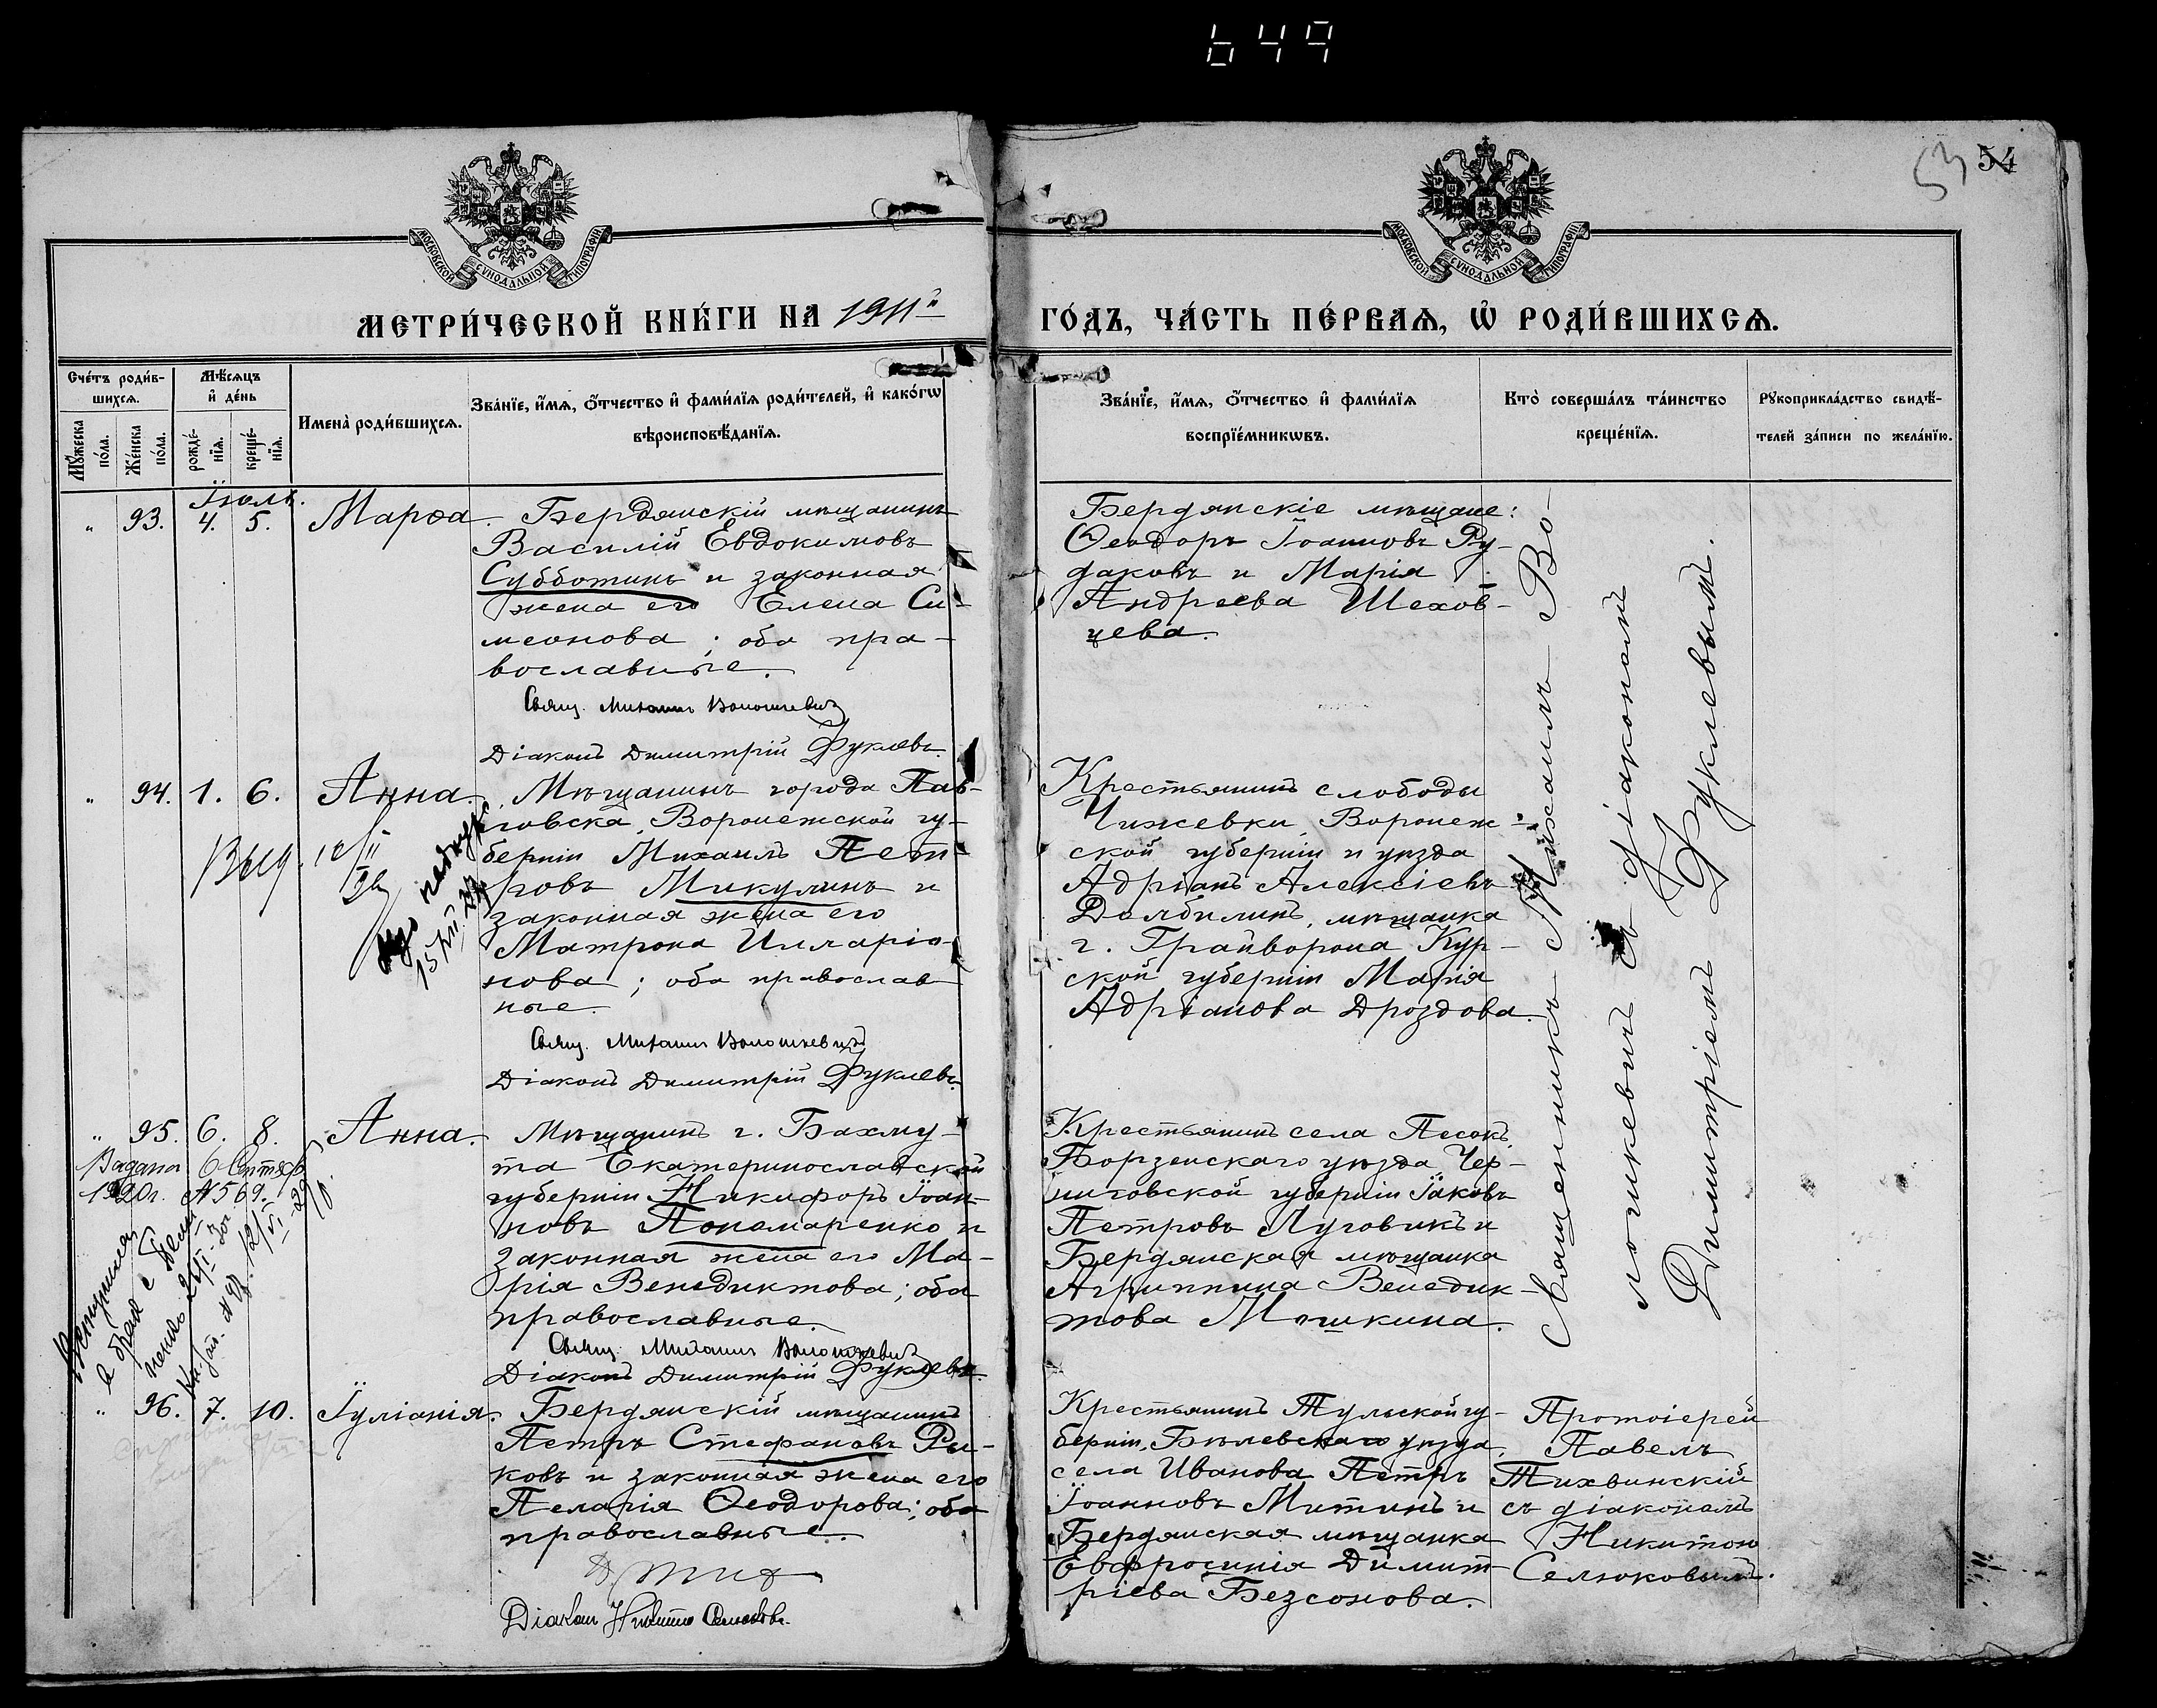 649
53
54
МОСКОВСКОЙ СУНОДАЛЬНОЙ ТИПОГРАФІИ
МОСКОВСКОЙ СУНОДАЛЬНОЙ ТИПОГРАФІИ
МЕТРИ́ЧЕСКОЙ КНИ́ГИ НА 1911й
ГО́ДЪ, ЧА́СТЬ ПЕ́РВАѦ, Ѡ҆ РОДИ́ВШИХСѦ.
Сче́тъ роди́в-
шихсѧ.
Мѣ́сѧцъ
и҆ де́нь
Мꙋ́жеска
по́ла.
Же́нска
по́ла.
рожде́-
нїѧ.
креще́-
нїѧ.
Имена̀ роди́вшихсѧ.
Зва́нїе, и҆́мѧ, ѻ҆́тчество и҆ фами́лїѧ роди́телей, и҆ како́гѡ
вѣроисповѣ́данїѧ.
Зва́нїе, и҆́мѧ, ѻ҆́тчество и҆ фами́лїѧ
воспрїе́мникѡвъ.
Кто̀ соверша́лъ та́инство
креще́нїѧ.
Рꙋкоприкла́дство свидѣ́-
телей за́писи по жела́нїю.
Іюль.
" 93. 4. 5. Марѳа.
Бердянскій мѣщанинъ
Василій Евдокимовъ
Субботинъ и законная
жена его Елена Си-
меонова; оба пра-
вославные.
Свящ. Михаилъ Волошкевичъ
Діаконъ Димитрій Фуклевъ
Бердянскіе мѣщане:
Ѳеодоръ Іоанновъ Ру-
даковъ и Марія
Андреева Шехов-
цева.
Священникъ Михаилъ Во-
лошкевичъ съ діакономъ
Димитріемъ Фуклевымъ.
" 94. 1. 6. Анна.
Мѣщанинъ города Пав-
ловска, Воронежской гу-
берніи Михаилъ Пет-
ровъ Микулинъ и
законная жена его
Матрона Иларіо-
нова; оба православ-
ные.
Свящ. Михаилъ Волошкевичъ
Діаконъ Димитрій Фуклевъ
Выд.
Крестьянинъ слободы
Чижевки, Воронеж-
ской губерніи и уѣзда
Адріанъ Алексіевъ
Долбилинъ, мѣщанка
г. Грайворона Кур-
ской губерніи Марія
Адріанова Дроздова.
" 95. 6. 8. Анна.
Мѣщанинъ г. Бахму-
та Екатеринославской
губерніи Никифоръ Іоан-
новъ Пономаренко и
законная жена его Ма-
рія Венедиктова; оба
православные.
Свящ. Михаилъ Волошкевичъ
Діаконъ Димитрій Фуклевъ
Выдана 6 Сентяб.
1920 г. № 569.
Вступила
в брак с
Крестьянинъ села Песокъ,
Борзенскаго уѣзда, Чер-
ниговской губерніи Іаковъ
Петровъ Луговикъ и
Бердянская мѣщанка
Агриппина Венедик-
това Мошкина.
" 96. 7. 10. Іуліанія.
Бердянскій мѣщанинъ
Петръ Стефановъ Ры-
ковъ и законная жена его
Пелагія Ѳеодорова; оба
православные.
Діаконъ Никита Селюковъ
Крестьянинъ Тульской гу-
берніи, Бѣлевскаго уѣзда,
села Иванова Петръ
Іоанновъ Митинъ и
Бердянская мѣщанка
Евфросинія Димит-
ріева Безсонова.
Протоіерей
Павелъ
Тихвинскій
съ діакономъ
Никитою
Селюковымъ.